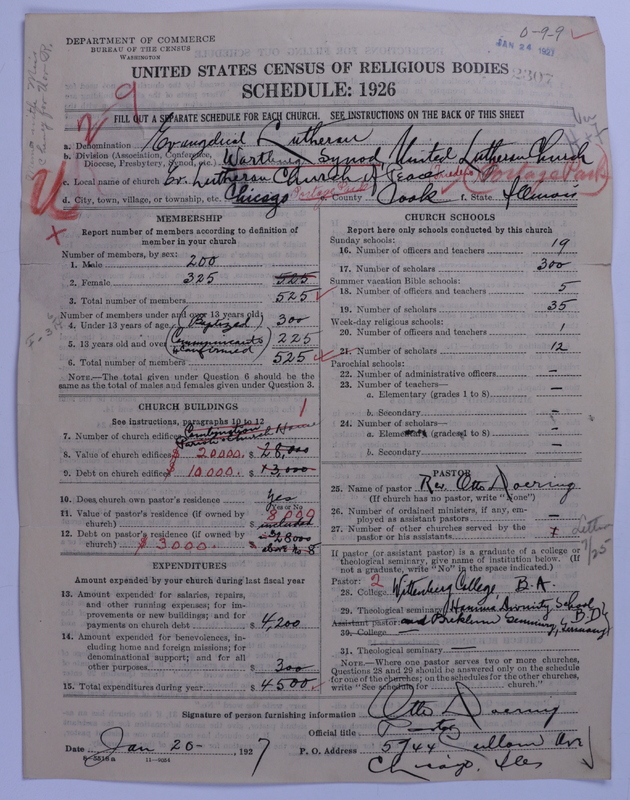 DEPARTMENT OF COMMERCE
BUREAU OF THE CENSUS
WASHINGTON
0-9-9
JAN 24 1927
2307
UNITED STATES CENSUS OF RELIGIOUS BODIES
SCHEDULE: 1926
29
FILL OUT A SEPARATE SCHEDULE FOR EACH CHURCH. SEE INSTRUCTIONS ON THE BACK OF THIS SHEET
a. Denomination Evangelical Lutheran
b. Division (Association, Conference, Diocese, Presbytery, Synod, etc.) Wartburg Synod United Lutheran Church
c. Local name of church Ev. Lutheran Church of Peace (Portage Park)
d. City, town, village, or township, etc. Chicago Portage Park County Cook f. State Illinois
MEMBERSHIP
Report number of members according to definition of member in your church
Number of members, by sex:
1. Male 200
2. Female 325 525
3. Total number of members 525
Number of members under and over 13 years old:
4. Under 13 years of age (Baptized) 300
5. 13 years old and over (Communicants & Confirmed) 225
6. Total number of members 525
NOTE.—The total given under Question 6 should be the same as the total of males and females given under Question 3.
CHURCH BUILDINGS
See instructions, paragraphs 10 to 12
7. Number of church edifices Combination Parish Church Home 1
8. Value of church edifices $ 20000. $ 28,000
9. Debt on church edifices $ 10000. $ 13,000
10. Does church own pastor's residence Yes
Yes or No
11. Value of pastor's residence (if owned by church) $ 8000 included
12. Debt on pastor's residence (if owned by church) $ 3000. $ 28000 above No 8
EXPENDITURES
Amount expended by your church during last fiscal year
13. Amount expended for salaries, repairs, and other running expenses; for improvements or new buildings; and for payments on church debt $ 4,200
14. Amount expended for benevolences, including home and foreign missions; for denominational support; and for all other purposes $ 300
15. Total expenditures during year $ 4500
CHURCH SCHOOLS
Report here only schools conducted by this church
Sunday schools:
16. Number of officers and teachers 19
17. Number of scholars 300
Summer vacation Bible schools:
18. Number of officers and teachers 5
19. Number of scholars 35
Week-day religious schools:
20. Number of officers and teachers 1
21. Number of scholars 12
Parochial schools:
22. Number of administrative officers —
23. Number of teachers—
a. Elementary (grades 1 to 8) —
b. Secondary —
24. Number of scholars—
a. Elementary (grades 1 to 8) —
b. Secondary —
PASTOR
25. Name of pastor Rev. Otto Doering
(If church has no pastor, write "None")
26. Number of ordained ministers, if any, employed as assistant pastors —
27. Number of other churches served by the pastor or his assistants
If pastor (or assistant pastor) is a graduate of a college or theological seminary, give name of institution below. (If not a graduate, write "No" in the space indicated.)
Pastor: 2
28. College Wittenberg College, B.A.
29. Theological seminary Hamma Divinity School, B.D.
Assistant pastor: and Breklum Seminary, Germany
30. College —
31. Theological seminary —
NOTE.—Where one pastor serves two or more churches, Questions 28 and 29 should be answered only on the schedule for one of the churches; on the schedules for the other churches, write "See schedule for church."
Signature of person furnishing information Otto Doering
Official title Pastor
Date Jan 20- , 1927
P. O. Address 5944 Cullom Av
Chicago, Ills
8-5519a 11-9064